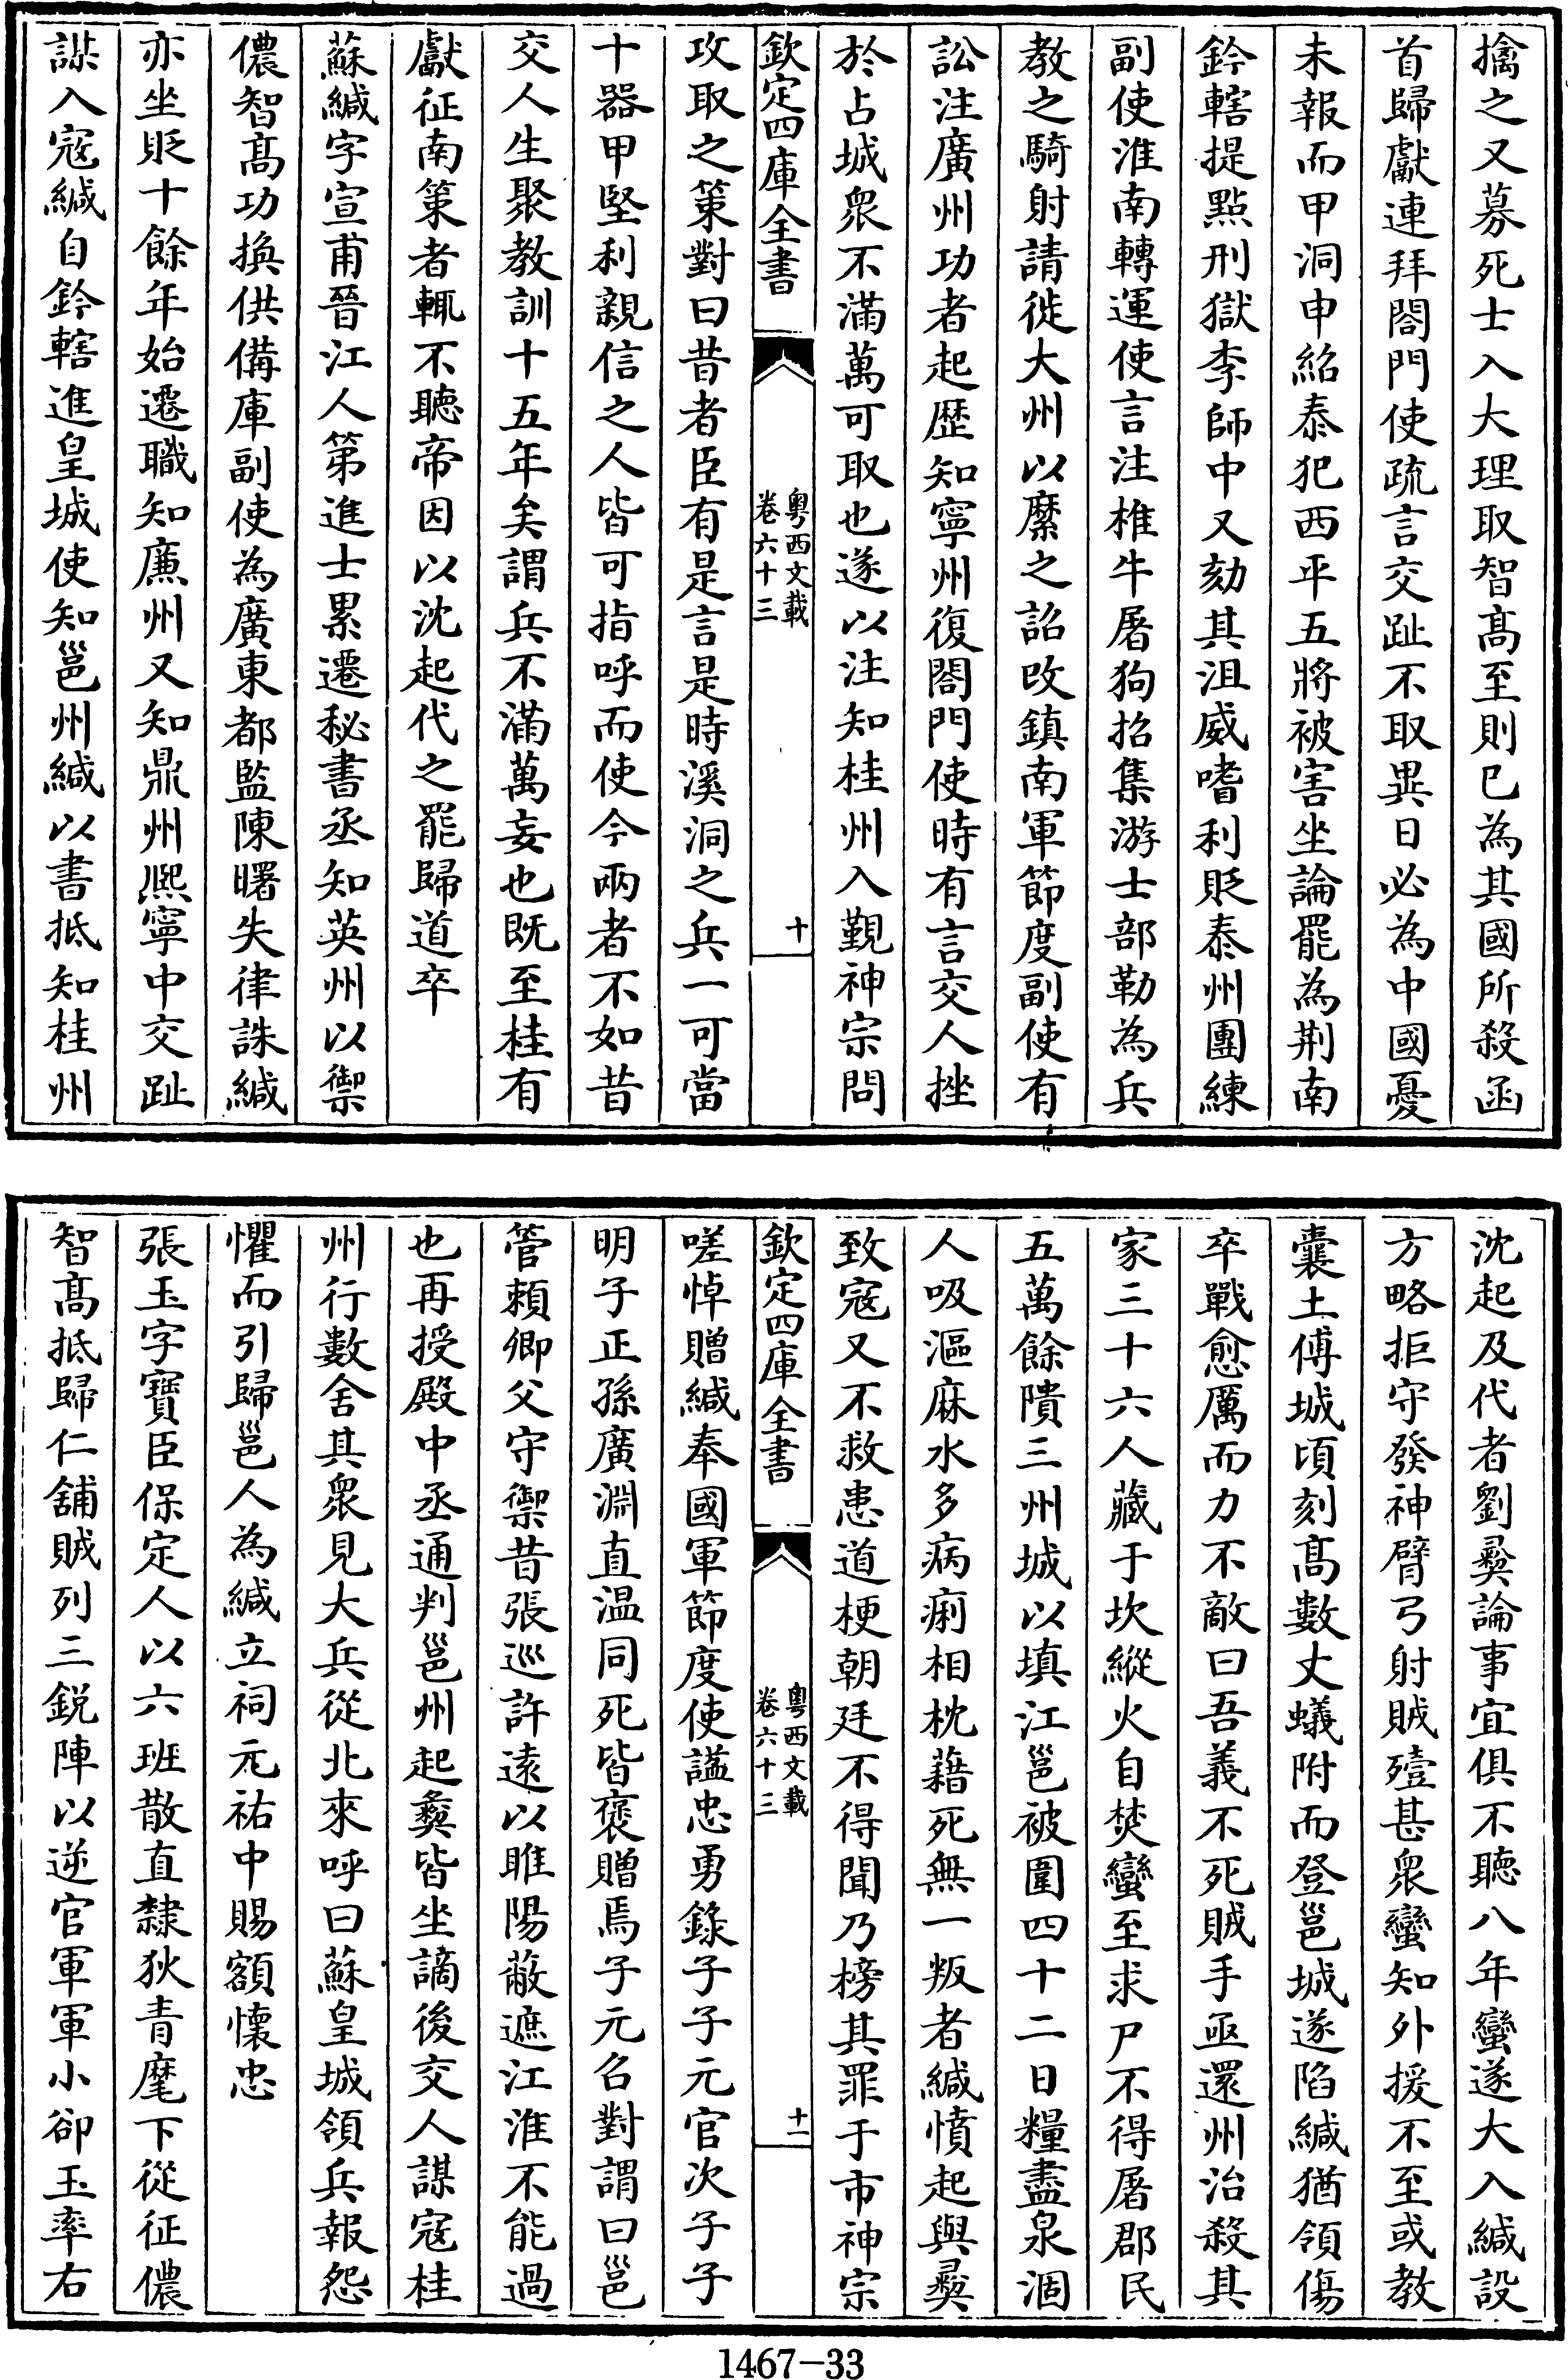 擒之又募死士入大理取智髙至則已為其國所殺函
首歸獻連拜閤門使疏言交趾不取異日必為中國憂
未報而甲洞申紹泰犯西平五將被害坐論罷為荆南
鈐轄提點刑獄李師中又劾其沮威嗜利貶泰州團練
副使淮南轉運使言注椎牛屠狗招集游士部勒為兵
教之騎射請徙大州以縻之詔改鎮南軍節度副使有
訟注廣州功者起歴知寧州復閤門使時有言交人挫
於占城衆不滿萬可取也遂以注知桂州入覲神宗問
欽定四庫全書
粵西文載
卷六十三
十
攻取之策對曰昔者臣有是言是時溪洞之兵一可當
十器甲堅利親信之人皆可指呼而使今兩者不如昔
交人生聚教訓十五年矣謂兵不滿萬妄也既至桂有
獻征南策者輒不聽帝因以沈起代之罷歸道卒
蘇緘字宣甫晉江人第進士累遷秘書丞知英州以禦
儂智髙功換供備庫副使為廣東都監陳曙失律誅緘
亦坐貶十餘年始遷職知廉州又知鼎州熙寧中交趾
謀入寇緘自鈐轄進皇城使知邕州緘以書抵知桂州
沈起及代者劉彞論事宜俱不聽八年蠻遂大入緘設
方略拒守發神臂弓射賊殪甚衆蠻知外援不至或教
囊土傅城頃刻髙數丈蟻附而登邕城遂陷緘猶領傷
卒戰愈厲而力不敵曰吾義不死賊手亟還州治殺其
家三十六人藏于坎縱火自焚蠻至求尸不得屠郡民
五萬餘隤三州城以填江邕被圍四十二日糧盡泉涸
人吸漚麻水多病痢相枕藉死無一叛者緘憤起與彞
致寇又不救患道梗朝廷不得聞乃榜其罪于市神宗
欽定四庫全書
粵西文載
卷六十三
十一
嗟悼贈緘奉國軍節度使諡忠勇錄子子元官次子子
明子正孫廣淵直温同死皆褒贈焉子元召對謂曰邕
管頼卿父守禦昔張巡許逺以睢陽蔽遮江淮不能過
也再授殿中丞通判邕州起彞皆坐謫後交人謀寇桂
州行數舍其衆見大兵從北來呼曰蘇皇城領兵報怨
懼而引歸邕人為緘立祠元祐中賜額懷忠
張玉字寶臣保定人以六班散直隸狄青麾下從征儂
智髙抵歸仁舖賊列三鋭陣以逆官軍軍小卻玉率右
1467-33